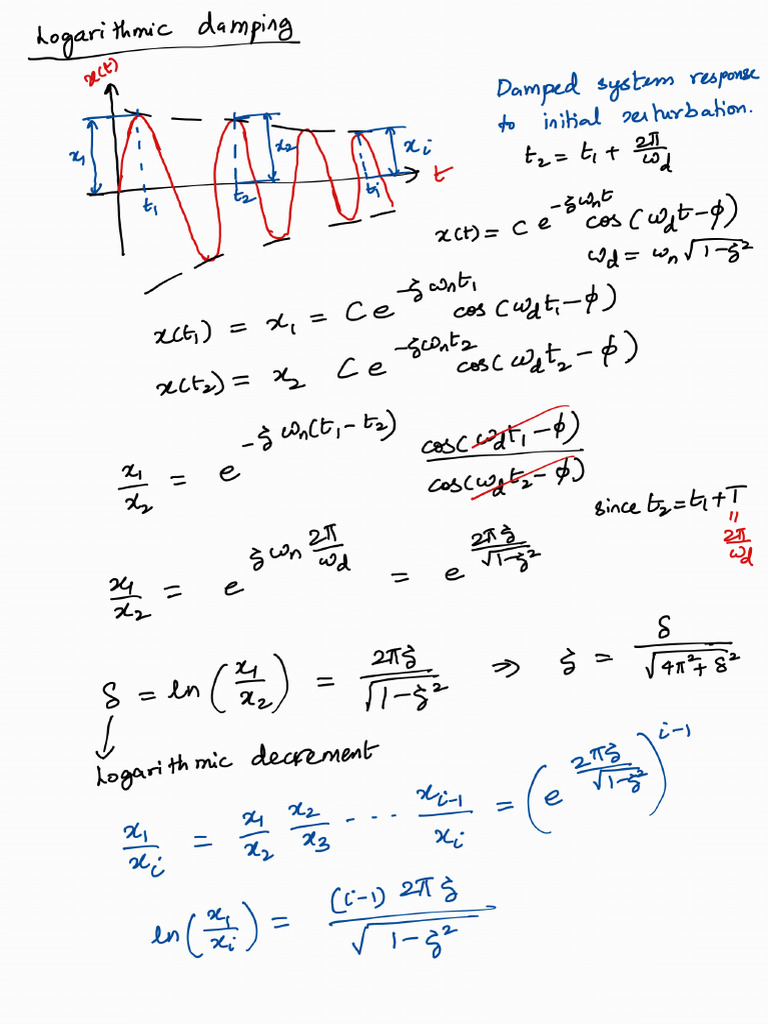 Logarithmic damping
x(t)
x₁
x₂
xᵢ
t₁
t₂
tᵢ
t
Damped system response
to initial perturbation.
t₂ = t₁ + 2π/ω_d
x(t) = C e^(-ζω_n t) cos(ω_d t - φ)
ω_d = ω_n √(1-ζ²)
x(t₁) = x₁ = C e^(-ζω_n t₁) cos(ω_d t₁ - φ)
x(t₂) = x₂ C e^(-ζω_n t₂) cos(ω_d t₂ - φ)
x₁/x₂ = e^(-ζω_n(t₁-t₂)) cos(ω_d t₁ - φ)/cos(ω_d t₂ - φ)
since t₂ = t₁ + T
=
2π/ω_d
x₁/x₂ = e^(ζω_n 2π/ω_d) = e^(2πζ/√(1-ζ²))
δ = ln(x₁/x₂) = 2πζ/√(1-ζ²) ⇒ ζ = δ/√(4π²+δ²)
Logarithmic decrement
x₁/xᵢ = x₁/x₂ x₂/x₃ ... xᵢ₋₁/xᵢ = (e^(2πζ/√(1-ζ²)))^(i-1)
ln(x₁/xᵢ) = (i-1) 2πζ/√(1-ζ²)